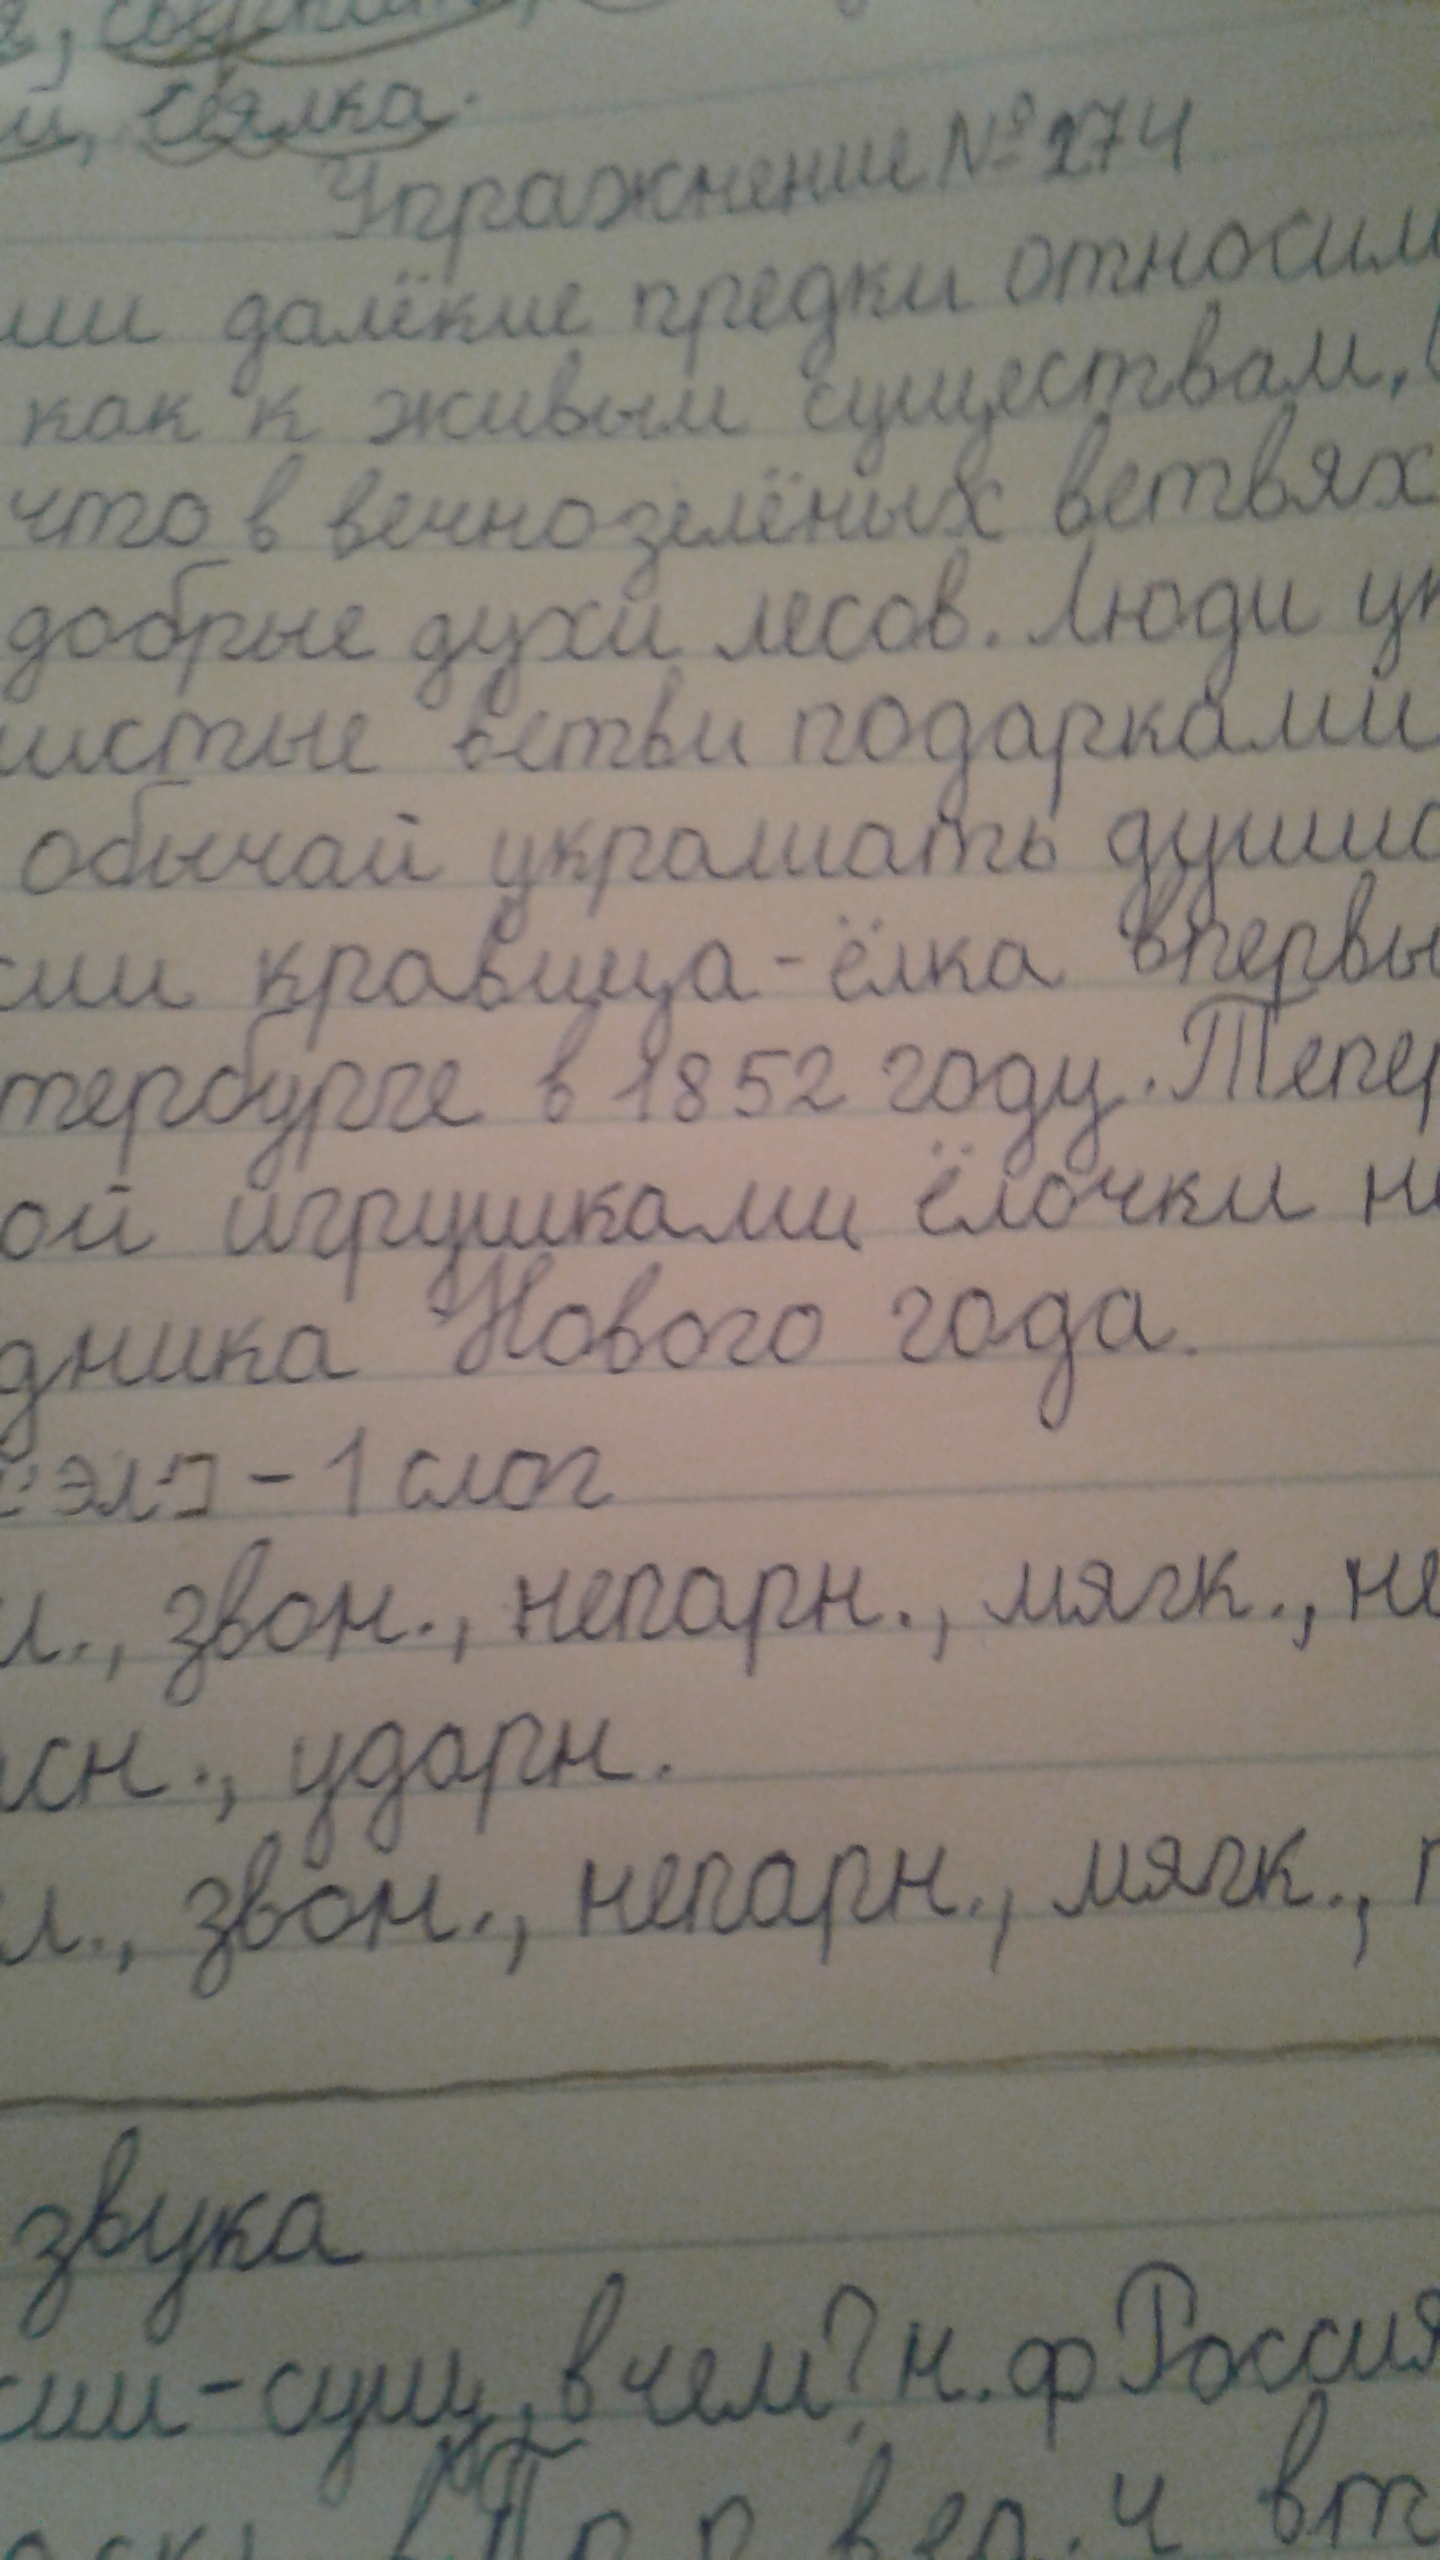 сеялка.
Упражнение № 274
далёкие предки относим
как к живым существам,
что в вечнозелёных ветвях
добрые духи лесов. Люди ук
шистые ветви подарками
обычай украшать душис
сии кравица-ёлка впервы
тербурге в 1852 году. Тепер
ой игрушками ёлочки не
дника Нового года.
эл'] - 1 слог
л., звон., непарн., мягк., не
сн., ударн.
л., звон., непарн., мягк., п
звука
сии - сущ, в чем? н. ф Россия